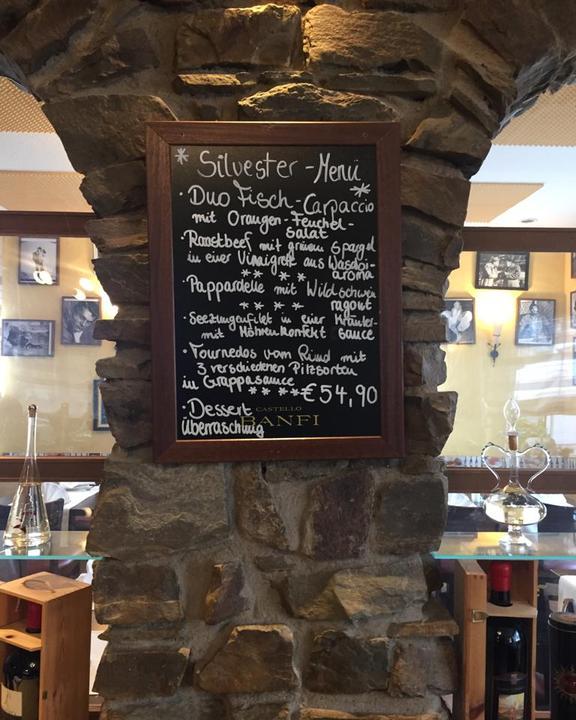 * Silvester - Menü *
· Duo Fisch - Carpaccio
mit Orangen-Feuchel-
salat
· Roastbeef mit grünen Spargel
in einer Vinaigrett aus Wasabi-
aroma
** * *
· Pappardelle mit Wildschwein
ragout
* * * *
· Seezungenfilet in einer Kräuter-
mit Möhren Konfekt sauce
· Tournedos vom Rind mit
3 verschiedenen Pilzsorten
in Grappasauce
** * * €54,90
· Dessert
Überraschung
CASTELLO
BANFI